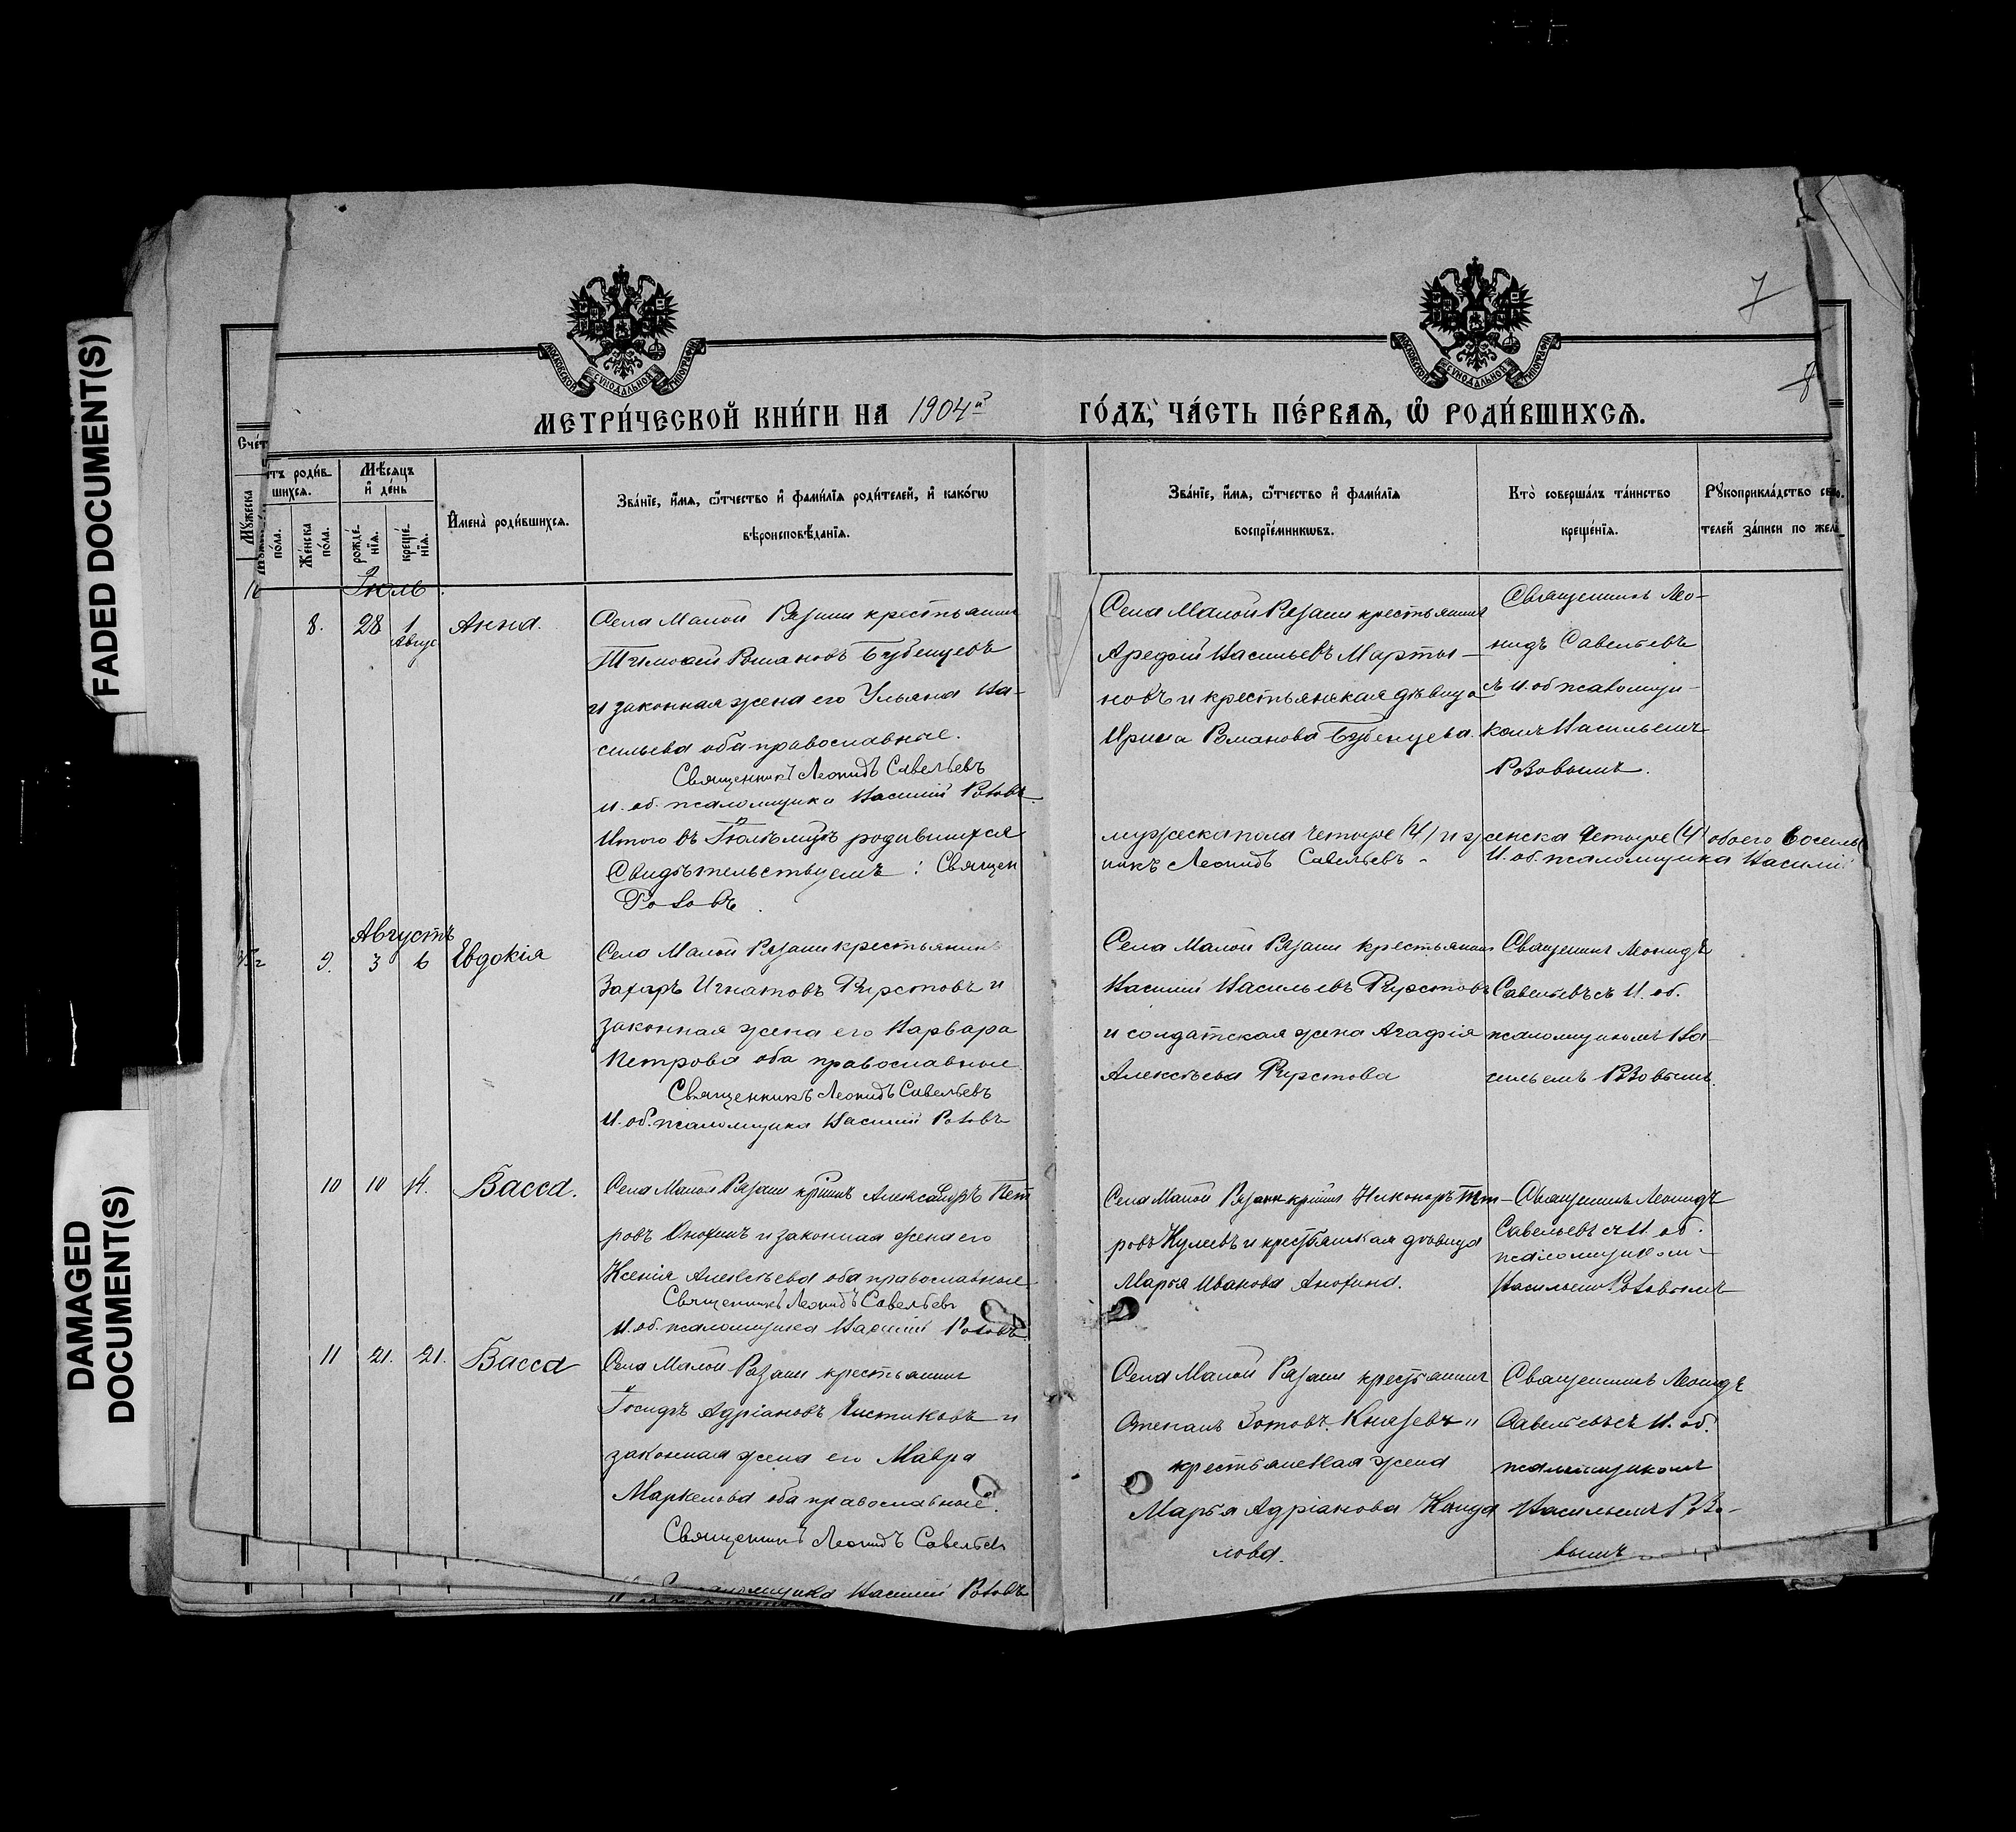 FADED DOCUMENT(S)
DAMAGED
DOCUMENT(S)
7
8
МОСКОВСКОЙ СѴНОДАЛЬНОЙ ТИПОГРАФІИ
МОСКОВСКОЙ СѴНОДАЛЬНОЙ ТИПОГРАФІИ
МЕТРИ́ЧЕСКОЙ КНИ́ГИ НА 1904й ГО́ДЪ, ЧА́СТЬ ПЕ́РВАѦ, Ѽ РОДИ́ВШИХСѦ.
Счет
Мужеска
тъ роди́в-
шихсѧ.
по́ла.
Же́нска
по́ла.
Мѣ́сѧцъ
и҆ де́нь
рожде́-
нїѧ.
креще́-
нїѧ.
И҆мена̀ роди́вшихсѧ.
Зва́нїе, и҆́мѧ, ѻ҆́тчество и҆ фами́лїѧ роди́телей, и҆ како́гѡ
вѣроисповѣ́данїѧ.
Зва́нїе, и҆́мѧ, ѻ҆́тчество и҆ фами́лїѧ
воспрїе́мникѡвъ.
Кто̀ соверша́лъ та́инство
креще́нїѧ.
Рꙋкоприкла́дство
телей за́писи по
Іюль.
8. 28 1 Авгус Анна.
Села Малой Рязани крестьянинъ
Тимофей Романовъ Бубенцевъ
и законная жена его Ульяна Ва-
сильева оба православные.
Священникъ Леонидъ Савельевъ
И. об. псаломщика Василий Розовъ.
Села Малой Рязани крестьянинъ
Арефий Васильевъ Марты-
новъ и крестьянская девица
Ирина Романова Бубенцева.
Священникъ Лео-
нидъ Савельевъ
съ И. об псаломщи-
комъ Васильемъ
Розовымъ.
Итого въ Іюлѣ мцѣ родившихся мужеска пола четыре (4) и женска четыре (4) обоего восемь
Свидѣтельствуемъ: Священникъ Леонидъ Савельевъ. И. об. псаломщика Василій
Розовъ.
Августъ
9. 3 6 Евдокія
Села Малой Рязани крестьянинъ
Захаръ Игнатовъ Фирстовъ и
законная жена его Варвара
Петрова оба православные
Священникъ Леонидъ Савельевъ
И. об. псаломщика Василий Розовъ
Села Малой Рязани крестьянинъ
Василий Васильевъ Фирстовъ
и солдатская жена Агафія
Алексѣева Фирстова
Священникъ Леонидъ
Савельевъ съ И. об.
псаломщикомъ Ва-
сильемъ Розовымъ.
10 10 14. Васса.
Села Малой Рязани кр-нинъ Александръ Пет
ровъ Анохинъ и законная жена его
Ксенія Алексѣева оба православные.
Священникъ Леонидъ Савельевъ
И. об. псаломщика Василий Розовъ.
Села Малой Рязани кр-нинъ Никоноръ Пет-
ровъ Кулеевъ и крестьянская дѣвица
Марья Иванова Анохина.
Священникъ Леонидъ
Савельевъ съ И. об.
псаломщикомъ
Васильемъ Розовымъ
11 21. 21. Васса
Села Малой Рязани крестьянинъ
Іосифъ Адріановъ Чистиковъ и
законная жена его Мавра
Маркелова оба православные.
Священникъ Леонидъ Савельевъ
псаломщика Василий Розовъ
Села Малой Рязани крестьянинъ
Степанъ Зотовъ Князевъ и
крестьянская жена
Марья Адріанова Канда
лова.
Священникъ Леонидъ
Савельевъ съ И. об.
псаломщикомъ
Васильемъ Розо-
вымъ